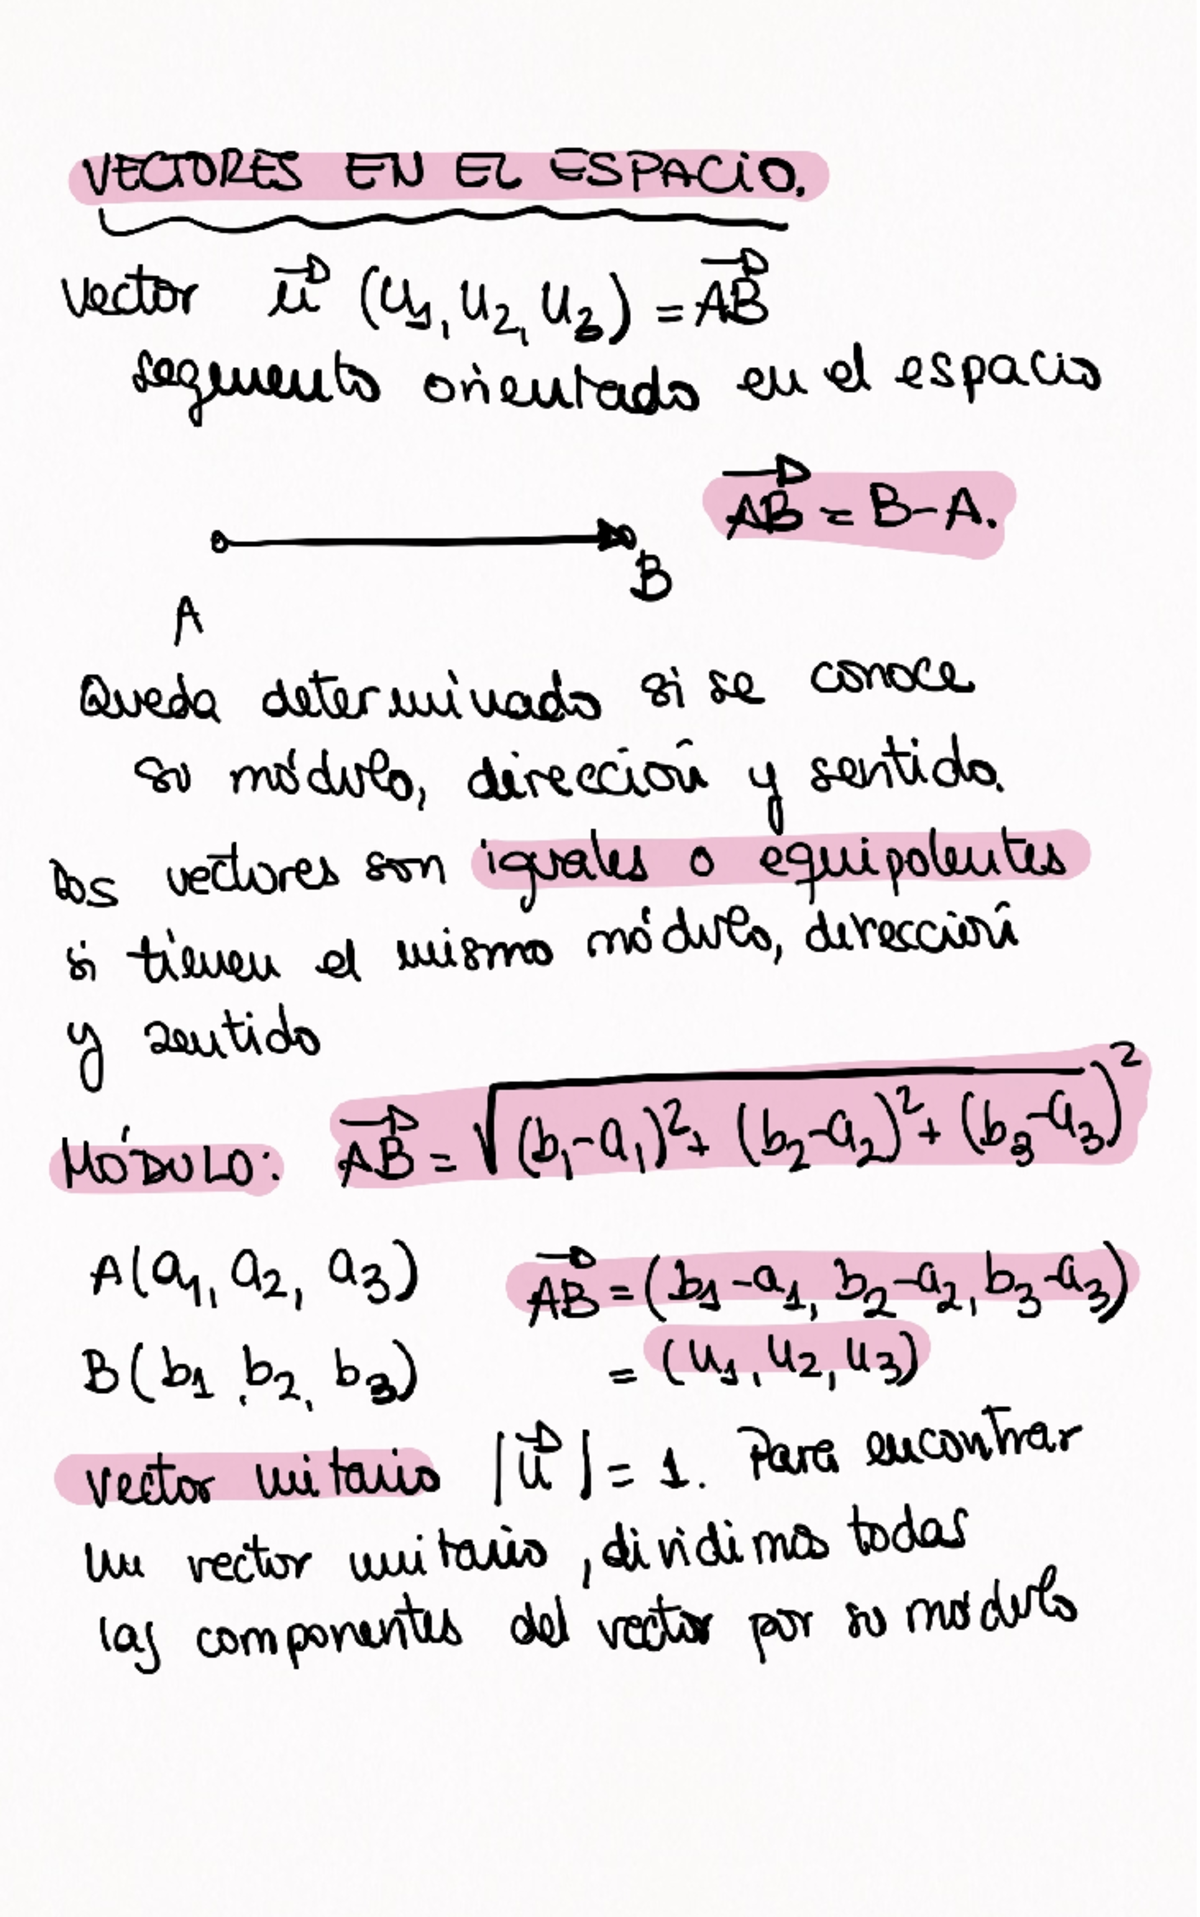 VECTORES EN EL ESPACIO.
Vector u⃗ (u₁, u₂, u₃) = A⃗B⃗
segmento orientado en el espacio
A⃗B⃗ = B-A.
A
B
Queda determinado si se conoce
su módulo, dirección y sentido.
Dos vectores son iguales o equipolentes
si tienen el mismo módulo, dirección
y sentido
MÓDULO: A⃗B⃗ = √(b₁-a₁)²+ (b₂-a₂)²+ (b₃-a₃)²
A(a₁, a₂, a₃) A⃗B⃗ = (b₁-a₁, b₂-a₂, b₃-a₃)
B(b₁, b₂, b₃) = (u₁, u₂, u₃)
Vector unitario |u⃗| = 1. Para encontrar
un vector unitario, dividimos todas
las componentes del vector por su módulo